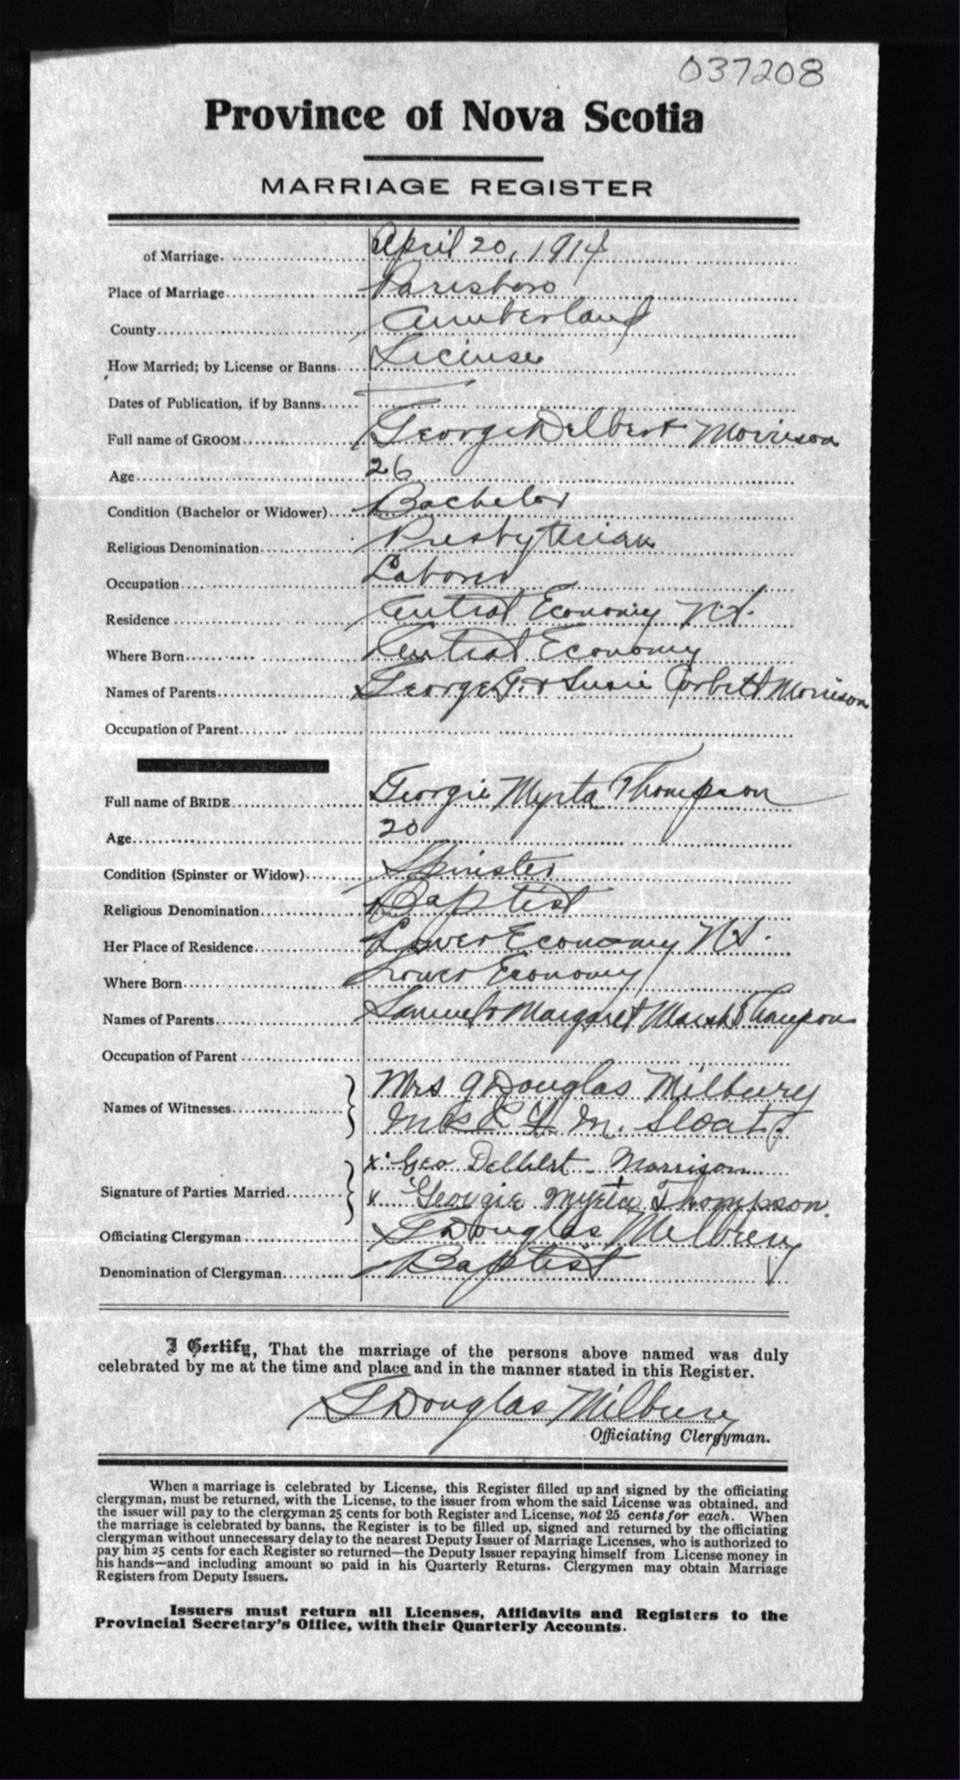 037208
Province of Nova Scotia
MARRIAGE REGISTER
of Marriage. April 20, 1914
Place of Marriage Parrsboro
County Cumberland
How Married; by License or Banns License
Dates of Publication, if by Banns
Full name of GROOM George Delbert Morrison
Age 26
Condition (Bachelor or Widower) Bachelor
Religious Denomination Presbyterian
Occupation Laborer
Residence Central Economy N.S.
Where Born Central Economy
Names of Parents George G. & Susie Corbett Morrison
Occupation of Parent
Full name of BRIDE Georgie Myrta Thompson
Age 20
Condition (Spinster or Widow) Spinster
Religious Denomination Baptist
Her Place of Residence Lower Economy N.S.
Where Born Lower Economy
Names of Parents Samuel & Margaret Marsh Thompson
Occupation of Parent
Names of Witnesses Mrs G Douglas Milbury
Mrs M. Sloat
Signature of Parties Married x Geo Delbert Morrison
x Georgie Myrta Thompson.
Officiating Clergyman G Douglas Milbury
Denomination of Clergyman Baptist
I Certify, That the marriage of the persons above named was duly
celebrated by me at the time and place and in the manner stated in this Register.
G Douglas Milbury
Officiating Clergyman.
When a marriage is celebrated by License, this Register filled up and signed by the officiating
clergyman, must be returned, with the License, to the issuer from whom the said License was obtained, and
the issuer will pay to the clergyman 25 cents for both Register and License, not 25 cents for each. When
the marriage is celebrated by banns, the Register is to be filled up, signed and returned by the officiating
clergyman without unnecessary delay to the nearest Deputy Issuer of Marriage Licenses, who is authorized to
pay him 25 cents for each Register so returned—the Deputy Issuer repaying himself from License money in
his hands—and including amount so paid in his Quarterly Returns. Clergymen may obtain Marriage
Registers from Deputy Issuers.
Issuers must return all Licenses, Affidavits and Registers to the
Provincial Secretary's Office, with their Quarterly Accounts.